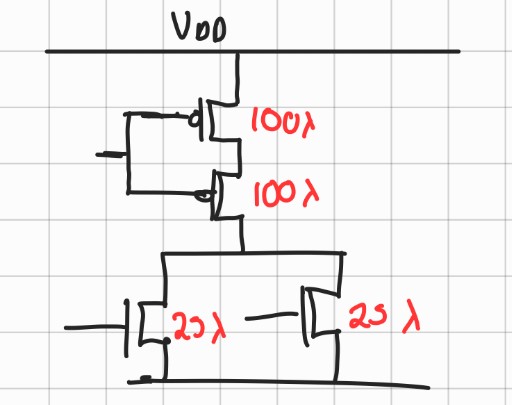 VDD
100λ
100λ
25λ
25λ